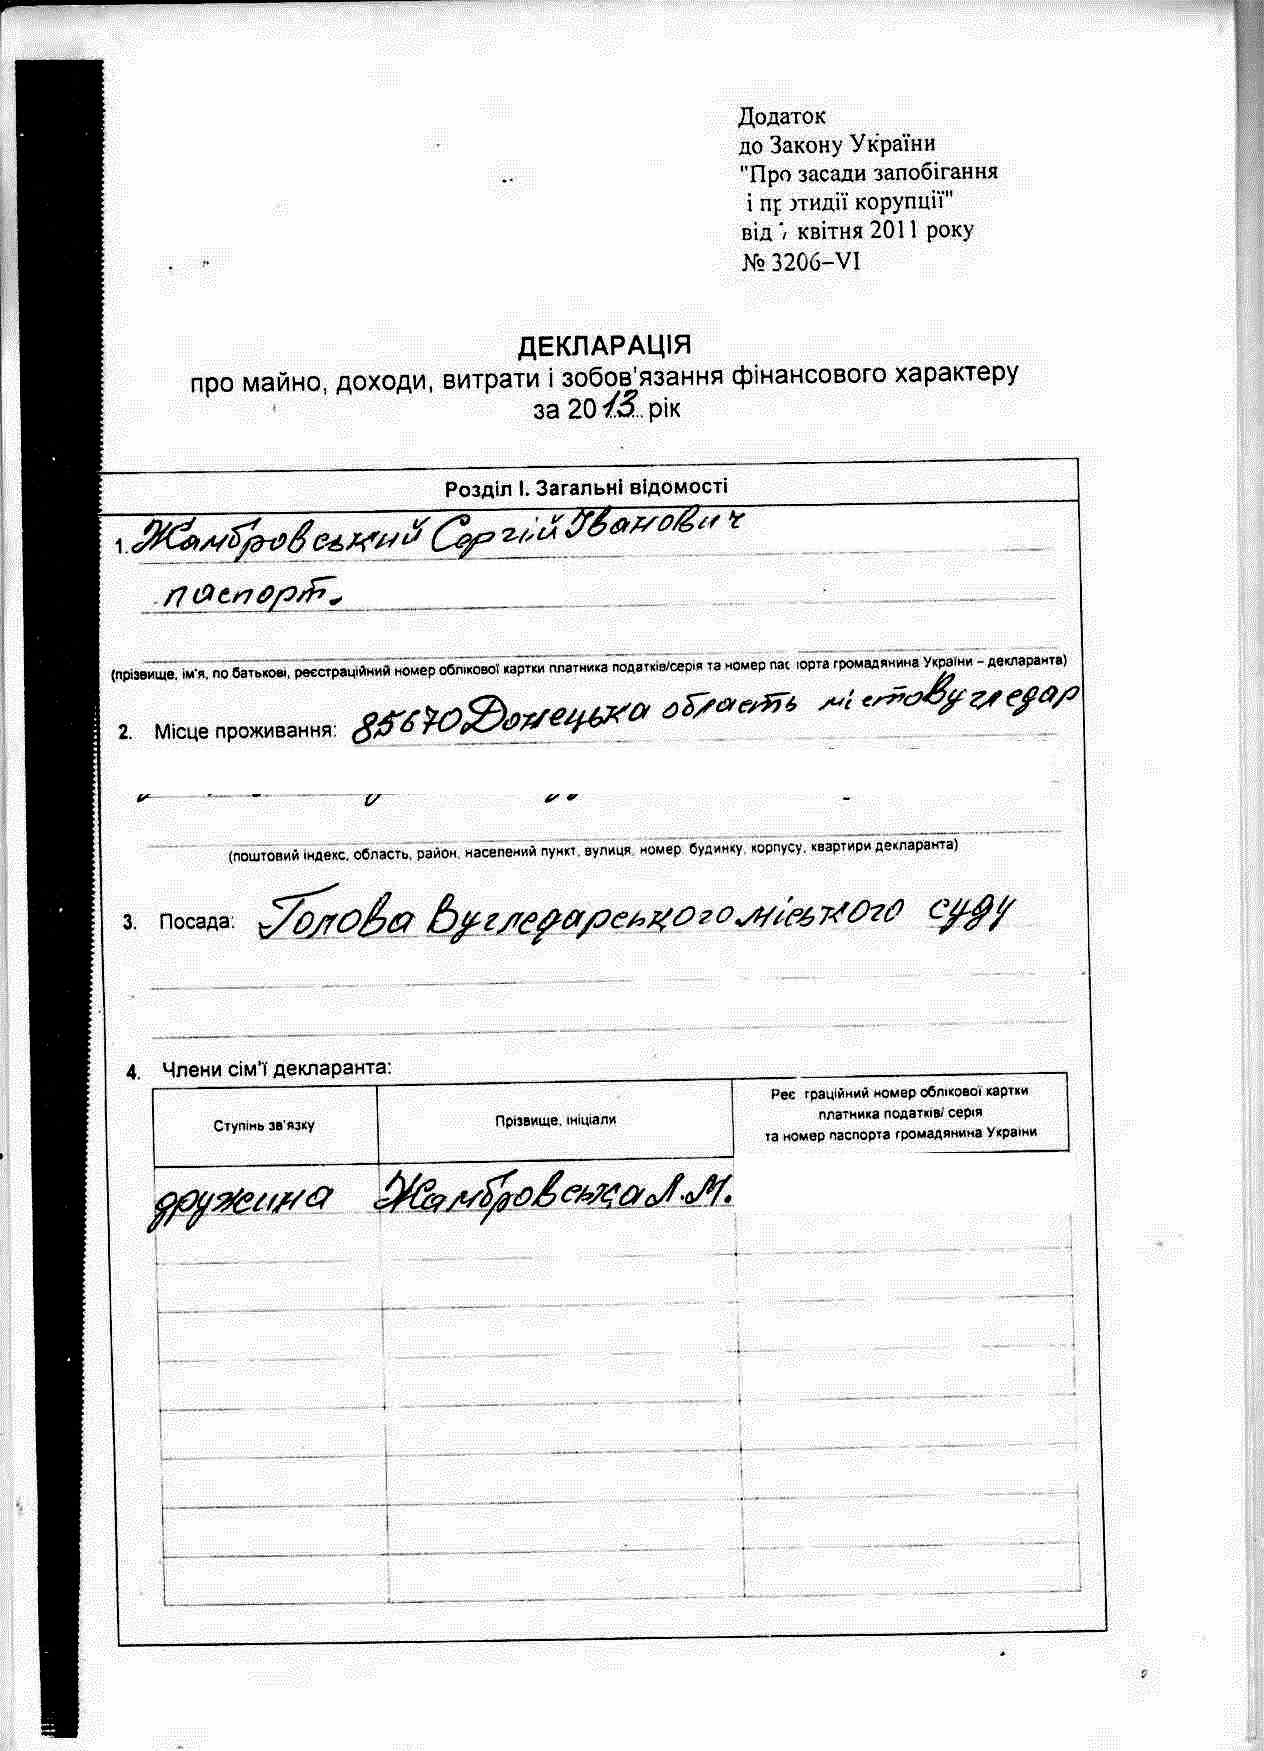 Додаток
до Закону України
"Про засади запобігання
і протидії корупції"
від 7 квітня 2011 року
№ 3206–VI
ДЕКЛАРАЦІЯ
про майно, доходи, витрати і зобов'язання фінансового характеру
за 2013 рік
Розділ І. Загальні відомості
1. Жамбровський Сергій Іванович
паспорт.
(прізвище, ім'я, по батькові, реєстраційний номер облікової картки платника податків/серія та номер паспорта громадянина України – декларанта)
2. Місце проживання: 85670 Донецька область місто Вугледар
(поштовий індекс, область, район, населений пункт, вулиця, номер будинку, корпусу, квартири декларанта)
3. Посада: Голова Вугледарського міського суду
4. Члени сім'ї декларанта:
Ступінь зв'язку
Прізвище, ініціали
Реєстраційний номер облікової картки
платника податків/ серія
та номер паспорта громадянина України
дружина Жамбровська Л.М.